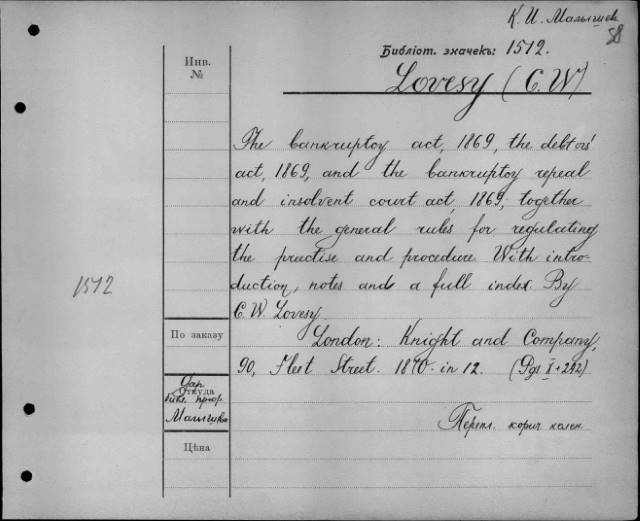 К. И. Малышев
58
Библіот. значекъ: 1512.
Инв.
№
Lovesy (C. W)
The bankruptcy act, 1869, the debtors'
act, 1869, and the bankruptcy repeal
and insolvent court act, 1869, together
with the general rules for regulating
the practise and procedure With intro-
duction, notes and a full index. By
C. W. Lovesy.
1512
По заказу
London: Knight and Company,
90, Fleet Street. 1870. in 12. (Pgs X+242)
Дар
Откуда
библ. проф.
Малышева
Перепл. корич. колен.
Цѣна